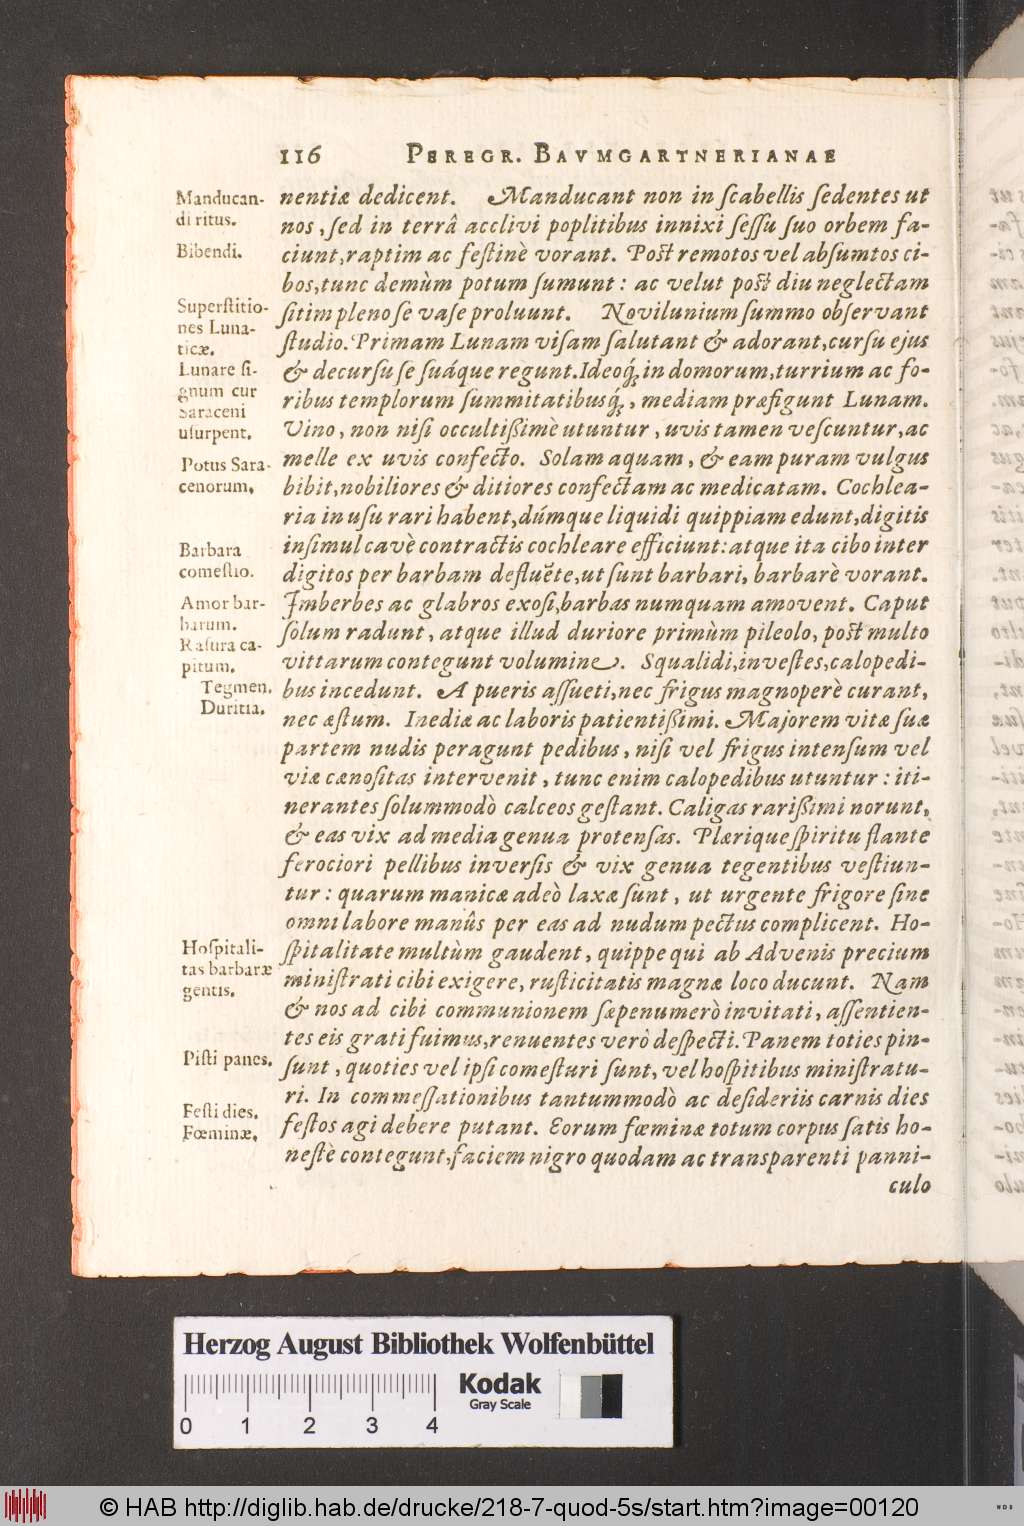 116 PEREGR. BAVMGARTNERIANAE
Manducan-
di ritus.
Bibendi.
Superstitio-
nes Luna-
ticæ.
Lunare si-
gnum cur
Saraceni
usurpent.
Potus Sara-
cenorum.
Barbara
comestio.
Amor bar-
barum.
Rasura ca-
pitum.
Tegmen.
Duritia.
Hospitali-
tas barbaræ
gentis.
Pisti panes.
Festi dies.
Fœminæ.
nentiæ dedicent. Manducant non in scabellis sedentes ut
nos, sed in terrâ acclivi poplitibus innixi sessu suo orbem fa-
ciunt, raptim ac festinè vorant. Post remotos vel absumtos ci-
bos, tunc demùm potum sumunt: ac velut post diu neglectam
sitim pleno se vase proluunt. Novilunium summo observant
studio. Primam Lunam visam salutant & adorant, cursu ejus
& decursu se suáque regunt. Ideoq́; in domorum, turrium ac fo-
ribus templorum summitatibusq́;, mediam præfigunt Lunam.
Vino, non nisi occultißimè utuntur, uvis tamen vescuntur, ac
melle ex uvis confecto. Solam aquam, & eam puram vulgus
bibit, nobiliores & ditiores confectam ac medicatam. Cochlea-
ria in usu rari habent, dúmque liquidi quippiam edunt, digitis
insimul cavè contractis cochleare efficiunt: atque ita cibo inter
digitos per barbam defluẽte, ut sunt barbari, barbarè vorant.
Imberbes ac glabros exosi, barbas numquam amovent. Caput
solum radunt, atque illud duriore primùm pileolo, post multo
vittarum contegunt volumine. Squalidi, investes, calopedi-
bus incedunt. A pueris assueti, nec frigus magnoperè curant,
nec æstum. Inediæ ac laboris patientißimi. Majorem vitæ suæ
partem nudis peragunt pedibus, nisi vel frigus intensum vel
viæ cænositas intervenit, tunc enim calopedibus utuntur: iti-
nerantes solummodò calceos gestant. Caligas rarißimi norunt,
& eas vix ad media genua protensas. Plærique spiritu flante
ferociori pellibus inversis & vix genua tegentibus vestiun-
tur: quarum manicæ adeò laxæ sunt, ut urgente frigore sine
omni labore manûs per eas ad nudum pectus complicent. Ho-
spitalitate multùm gaudent, quippe qui ab Advenis precium
ministrati cibi exigere, rusticitatis magnæ loco ducunt. Nam
& nos ad cibi communionem sæpenumerò invitati, assentien-
tes eis grati fuimus, renuentes verò despecti. Panem toties pin-
sunt, quoties vel ipsi comesturi sunt, vel hospitibus ministratu-
ri. In commessationibus tantummodò ac desideriis carnis dies
festos agi debere putant. Eorum fœminæ totum corpus satis ho-
nestè contegunt, faciem nigro quodam ac transparenti panni-
culo
Herzog August Bibliothek Wolfenbüttel
0 1 2 3 4
Kodak
Gray Scale
© HAB http://diglib.hab.de/drucke/218-7-quod-5s/start.htm?image=00120